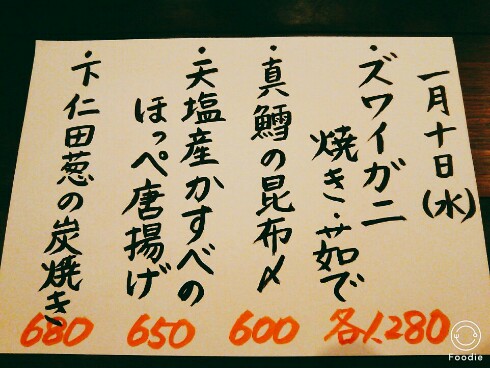 一月十日(水)
・ズワイガニ
焼き・茹で
各1,280
・真鱈の昆布〆
600
・天塩産かすべの
ほっぺ唐揚げ
650
・下仁田葱の炭焼き
680
Foodie